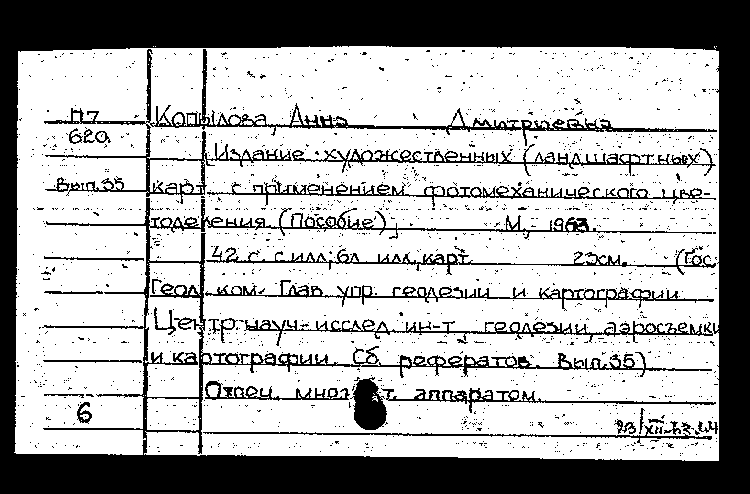 П7 Копылова, Анна Дмитриевна
620.
Издание художественных (ландшафтных)
Вып.35 карт с применением фотомеханического цве-
тоделения (Пособие), М., 1963.
42 с. с илл; 6л. илл, карт. 29см. (Гос.
Геол. ком. Глав. упр. геодезии и картографии
Центр. науч-исслед. ин-т геодезии, аэросъемки
и картографии. Сб. рефератов. Вып.35)
Отпеч. множ. т. аппаратом.
6